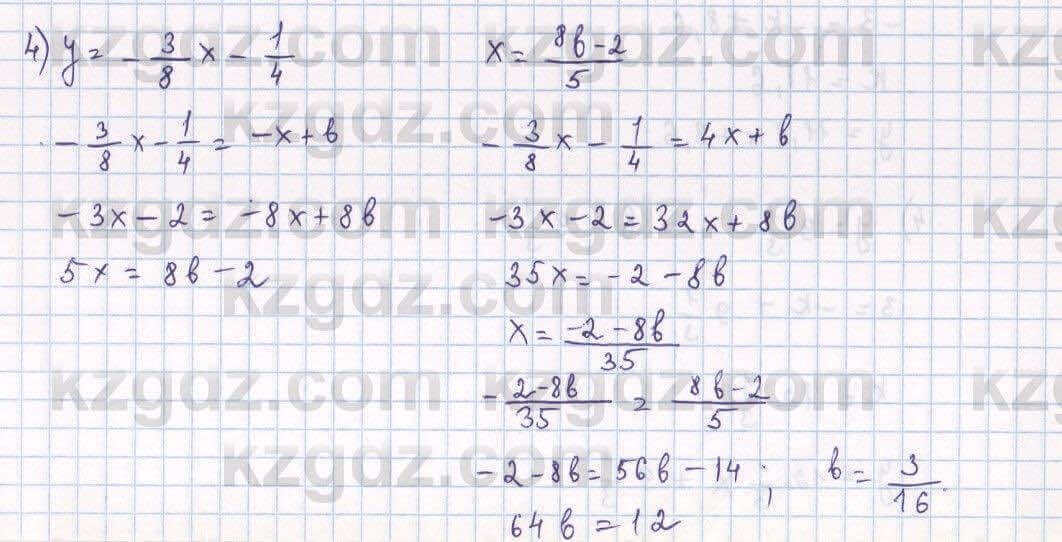 4) y = -3/8 x - 1/4
-3/8 x - 1/4 = -x + b
-3x - 2 = -8x + 8b
5x = 8b - 2
x = (8b - 2)/5
-3/8 x - 1/4 = 4x + b
-3x - 2 = 32x + 8b
35x = -2 - 8b
x = (-2 - 8b)/35
-(2 - 8b)/35 = (8b - 2)/5
-2 - 8b = 56b - 14 ; b = 3/16.
64b = 12
kzgdz.com